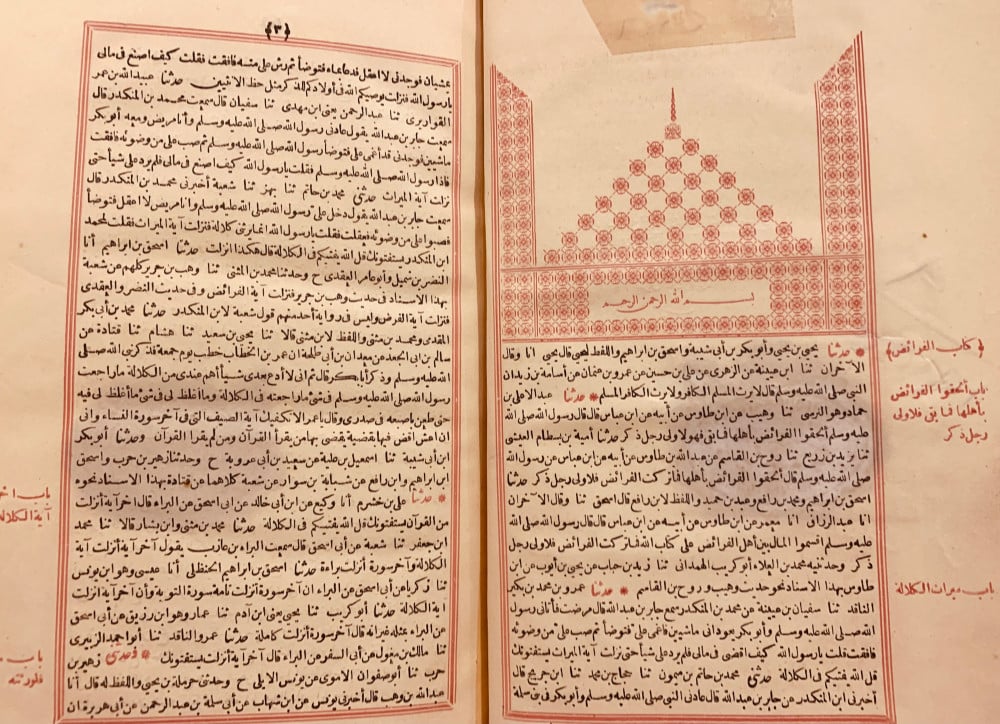 بسم الله الرحمن الرحيم
﴿ كتاب الفرائض ﴾
* حدثنا يحيى بن يحيى وأبو بكر بن أبي شيبة واسحق بن ابراهيم واللفظ ليحيى قال يحيى انا وقال
الآخران ثنا ابن عيينة عن الزهرى عن على بن حسين عن عمرو بن عثمان عن أسامة بن زيد ان
النبى صلى الله عليه وسلم قال لا يرث المسلم الكافر ولا يرث الكافر المسلم * حدثنا عبد الاعلى بن
باب ألحقوا الفرائض
بأهلها فما بقى فلاولى
رجل ذكر
حماد وهو النرسى ثنا وهيب عن ابن طاوس عن أبيه عن ابن عباس قال قال رسول الله صلى الله
عليه وسلم ألحقوا الفرائض بأهلها فما بقى فهو لاولى رجل ذكر حدثنا أمية بن بسطام العيشى
ثنا يزيد بن زريع ثنا روح بن القاسم عن عبد الله بن طاوس عن أبيه عن ابن عباس عن رسول الله
صلى الله عليه وسلم قال ألحقوا الفرائض بأهلها فما تركت الفرائض فلاولى رجل ذكر حدثنا
اسحق بن ابراهيم ومحمد بن رافع وعبد بن حميد واللفظ لابن رافع قال اسحق ثنا وقال الآخران
انا عبد الرزاق انا معمر عن ابن طاوس عن أبيه عن ابن عباس قال قال رسول الله صلى الله
عليه وسلم اقسموا المال بين أهل الفرائض على كتاب الله فما تركت الفرائض فلاولى رجل
ذكر وحدثنيه محمد بن العلاء أبو كريب الهمدانى ثنا زيد بن حباب عن يحيى بن أيوب عن ابن
طاوس بهذا الاسناد نحو حديث وهيب وروح بن القاسم * حدثنا عمرو بن محمد بن بكير
باب ميراث الكلالة
الناقد ثنا سفيان بن عيينة عن محمد بن المنكدر سمع جابر بن عبد الله قال مرضت فأتانى رسول
الله صلى الله عليه وسلم وأبو بكر يعودانى ماشيين فاغمى على فتوضأ ثم صب على من وضوئه
فافقت قلت يا رسول الله كيف اقضى فى مالى فلم يرد على شيأ حتى نزلت آية الميراث يستفتونك
قل الله يفتيكم فى الكلالة حدثنى محمد بن حاتم بن ميمون ثنا حجاج بن محمد ثنا ابن جريج قال
أخبرنى ابن المنكدر عن جابر بن عبد الله قال عادنى النبى صلى الله عليه وسلم وأبو بكر فى بنى سلمة
﴿٣﴾
يمشيان فوجدنى لا اعقل فدعا بماء فتوضأ ثم رش على منه فافقت فقلت كيف اصنع فى مالى
يا رسول الله فنزلت يوصيكم الله فى أولادكم للذكر مثل حظ الانثيين حدثنا عبيد الله بن عمر
القواريرى ثنا عبد الرحمن يعنى ابن مهدى ثنا سفيان قال سمعت محمد بن المنكدر قال
سمعت جابر بن عبد الله يقول عادنى رسول الله صلى الله عليه وسلم وأنا مريض ومعه أبو بكر
ماشيين فوجدنى قد أغمى على فتوضأ رسول الله صلى الله عليه وسلم ثم صب على من وضوئه فافقت
فاذا رسول الله صلى الله عليه وسلم فقلت يا رسول الله كيف اصنع فى مالى فلم يرد على شيأ حتى
نزلت آية الميراث حدثنى محمد بن حاتم ثنا بهز ثنا شعبة أخبرنى محمد بن المنكدر قال
سمعت جابر بن عبد الله يقول دخل على رسول الله صلى الله عليه وسلم وانا مريض لا اعقل فتوضأ
فصبوا على من وضوئه فعقلت فقلت يا رسول الله انما يرثنى كلالة فنزلت آية الميراث فقلت لمحمد
ابن المنكدر يستفتونك قل الله يفتيكم فى الكلالة قال هكذا انزلت حدثنا اسحق بن ابراهيم أنا
النضر بن شميل وأبو عامر العقدى ح وحدثنا محمد بن المثنى ثنا وهب بن جرير كلهم عن شعبة
بهذا الاسناد فى حديث وهب بن جرير فنزلت آية الفرائض وفى حديث النضر والعقدى
فنزلت آية الفرض وليس فى رواية أحد منهم قول شعبة لابن المنكدر حدثنا محمد بن أبى بكر
المقدمى ومحمد بن مثنى واللفظ لابن مثنى قالا ثنا يحيى بن سعيد ثنا هشام ثنا قتادة عن
سالم بن ابى الجعد عن معدان بن أبى طلحة ان عمر بن الخطاب خطب يوم جمعة فذكر نبى الله صلى
الله عليه وسلم وذكر أبا بكر قال ثم انى لا أدع بعدى شيأ أهم عندى من الكلالة ما راجعت
رسول الله صلى الله عليه وسلم فى شئ ما راجعته فى الكلالة وما اغلظ لى فى شئ ما اغلظ لى فيه
حتى طعن باصبعه فى صدرى وقال يا عمر الا تكفيك آية الصيف التى فى آخر سورة النساء وانى
ان اعش اقض فيها بقضية يقضى بها من يقرأ القرآن ومن لم يقرا القرآن وحدثنا أبو بكر
ابن أبى شيبة ثنا اسمعيل بن علية عن سعيد بن أبى عروبة ح وحدثنا زهير بن حرب واسحق
ابن ابراهيم وابن رافع عن شبابة بن سوار عن شعبة كلاهما عن قتادة بهذا الاسناد نحوه
باب اخر
آية الكلالة
* حدثنا على بن خشرم أنا وكيع عن ابن أبى خالد عن ابى اسحق عن البراء قال آخر آية أنزلت
من القرآن يستفتونك قل الله يفتيكم فى الكلالة حدثنا محمد بن مثنى وابن بشار قالا ثنا محمد
ابن جعفر ثنا شعبة عن أبى اسحق قال سمعت البراء بن عازب يقول آخر آية أنزلت آية
الكلالة وآخر سورة أنزلت براءة حدثنا اسحق بن ابراهيم الحنظلى أنا عيسى وهو ابن يونس
ثنا زكريا عن أبى اسحق عن البراء ان آخر سورة أنزلت تامة سورة التوبة وأن آخر آية أنزلت
آية الكلالة حدثنا أبو كريب ثنا يحيى يعنى ابن آدم ثنا عمار وهو ابن رزيق عن أبى اسحق
عن البراء بمثله غير انه قال آخر سورة أنزلت كاملة حدثنا عمرو الناقد ثنا أبو احمد الزبيرى
ثنا مالك بن مغول عن أبى السفر عن البراء قال آخر آية أنزلت يستفتونك * وحدثنى زهير بن
فلورثته
حرب ثنا أبو صفوان الاموى عن يونس الايلى ح وحدثنى حرملة بن يحيى واللفظ له قال أنا
عبد الله بن وهب قال أخبرنى يونس عن ابن شهاب عن أبى سلمة بن عبد الرحمن عن أبى هريرة ان